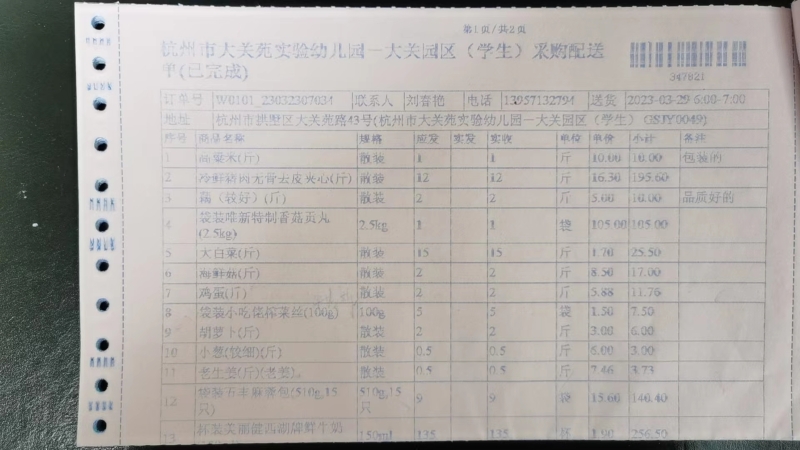 第1页/共2页
杭州市大关苑实验幼儿园一大关园区（学生）采购配送
单(已完成)
347821
订单号 W0101_23032307034 联系人 刘春艳 电话 13957132794 送货 2023-03-29 6:00-7:00
地址 杭州市拱墅区大关苑路43号(杭州市大关苑实验幼儿园一大关园区（学生）(GSJY0049)
序号 商品名称 规格 应发 实发 实收 单位 单价 小计 备注
1 高粱米(斤) 散装 1 1 斤 10.00 10.00 包装的
2 冷鲜精肉无骨去皮夹心(斤) 散装 12 12 斤 16.30 195.60
3 藕（较好）(斤) 散装 2 2 斤 5.00 10.00 品质好的
4 袋装唯新特制香菇贡丸 2.5kg 1 1 袋 105.00 105.00
(2.5kg)
5 大白菜(斤) 散装 15 15 斤 1.70 25.50
6 海鲜菇(斤) 散装 2 2 斤 8.50 17.00
7 鸡蛋(斤) 散装 2 2 斤 5.88 11.76
8 袋装小吃佬榨菜丝(100g) 100g 5 5 袋 1.50 7.50
9 胡萝卜(斤) 散装 2 2 斤 3.00 6.00
10 小葱(较细)(斤) 散装 0.5 0.5 斤 6.00 3.00
11 老生姜(斤)(老姜) 散装 0.5 0.5 斤 7.46 3.73
12 袋装五丰麻蓉包(510g,15 510g,15 9 9 袋 15.60 140.40
只) 只
13 杯装美丽健西湖牌鲜牛奶 150ml 135 135 杯 1.90 256.50